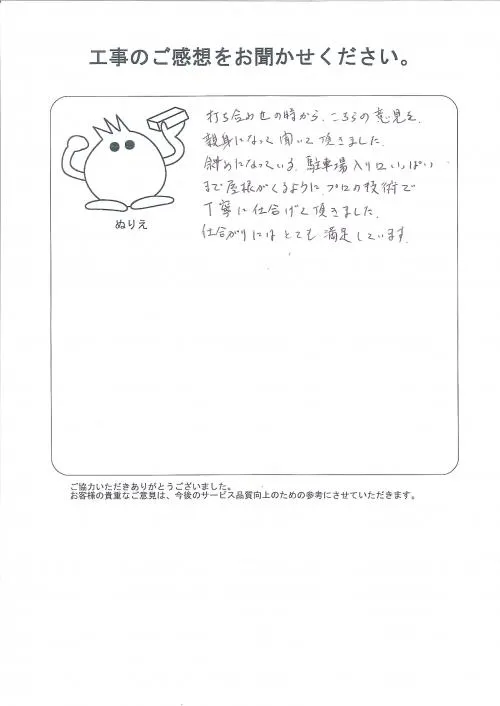 工事のご感想をお聞かせください。
打ち合わせの時から、こちらの意見を、
親身になって聞いて頂きました。
斜めになっている、駐車場入り口いっぱい
まで屋根がくるように、プロの技術で
丁寧に仕上げて頂きました。
仕上がりにはとても満足しています。
ぬりえ
ご協力いただきありがとうございました。
お客様の貴重なご意見は、今後のサービス品質向上のための参考にさせていただきます。